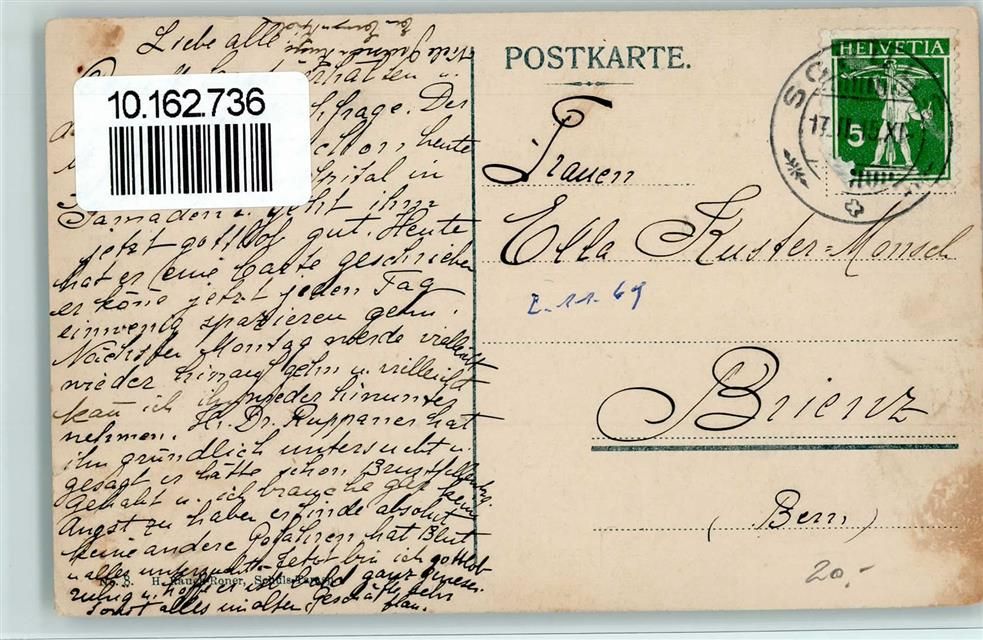 Liebe alle!
10.162.736
erhalten u.
chfrage. Der
schon heute
Spital in
Samaden u. geht ihm
jetzt gottlob gut. Heute
hat er eine Carte geschrieben
er köne jetzt jeden Tag
einwenig spazieren gehn.
Nächsten Montag werde vielleicht
wieder hinauf gehn u. vielleicht
kan̄ ich ihn wieder hinunter
nehmen. Hr. Dr. Ruppaner hat
ihn gründlich untersucht u.
gesagt er hätte schon Brustfellentzg.
gehabt u. ich brauche gar keine
Angst zu haben er finde absolut
keine andere Gefahren, hat Blut
u alles untersucht. Jetzt bin ich gottlob
ruhig u. hoffe er ist bald ganz genesen.
Sonst alles im alten, Geschäft sehr
flau.
No. 8. H. Rauch-Roner, Schuls-Tarasp
POSTKARTE.
HELVETIA
5
Frauen
Ella Kuster-Monsch
E. 11. 69
Brienz
(Bern)
20.-